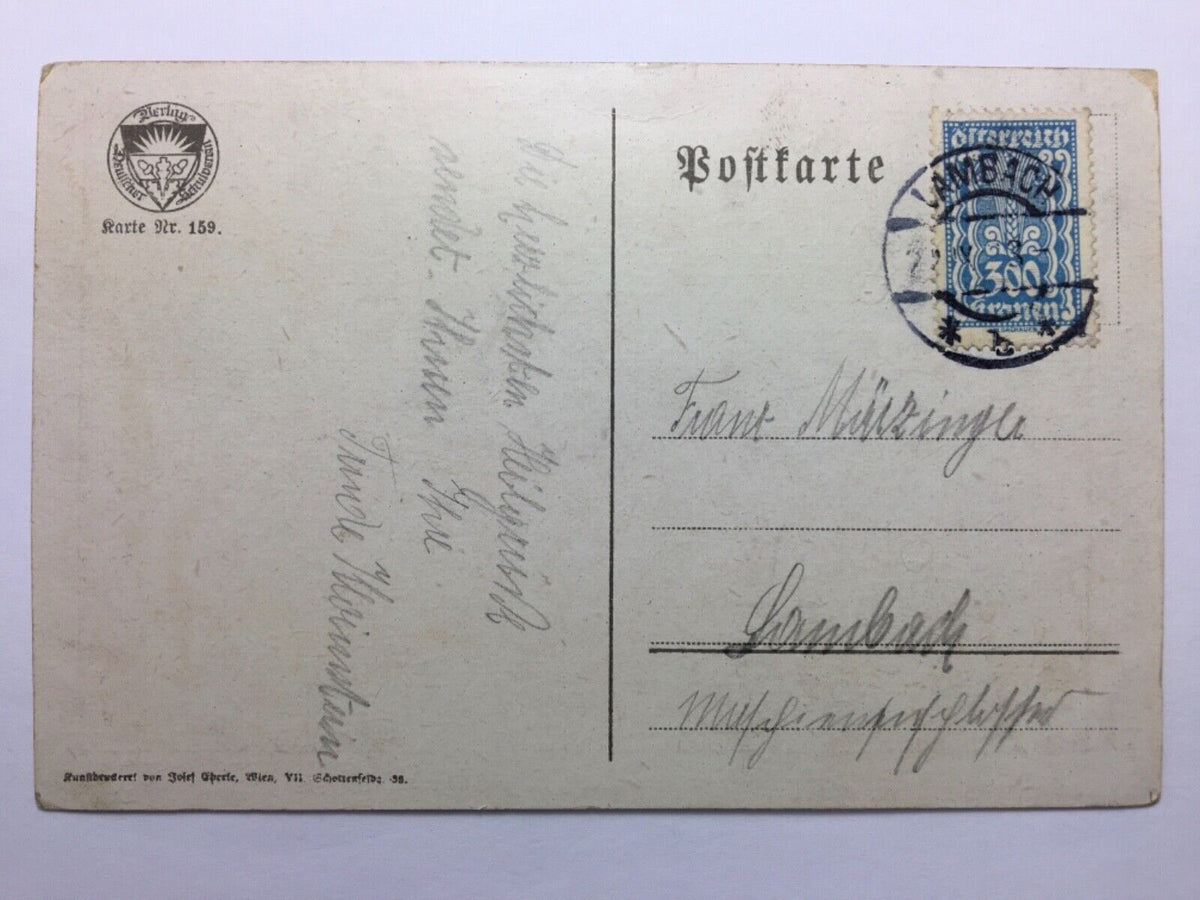 Verlag
Deutscher Schulverein
Karte Nr. 159.
Die herzlichsten Heilgrüße
sendet Ihnen Ihre
Postkarte
österreich
300
Kronen
LAMBACH
b
Franz Märzinger
Lambach
Maschienenschlosser
Kunstdruckerei von Josef Eberle, Wien, VII. Schottenfeldg. 38.